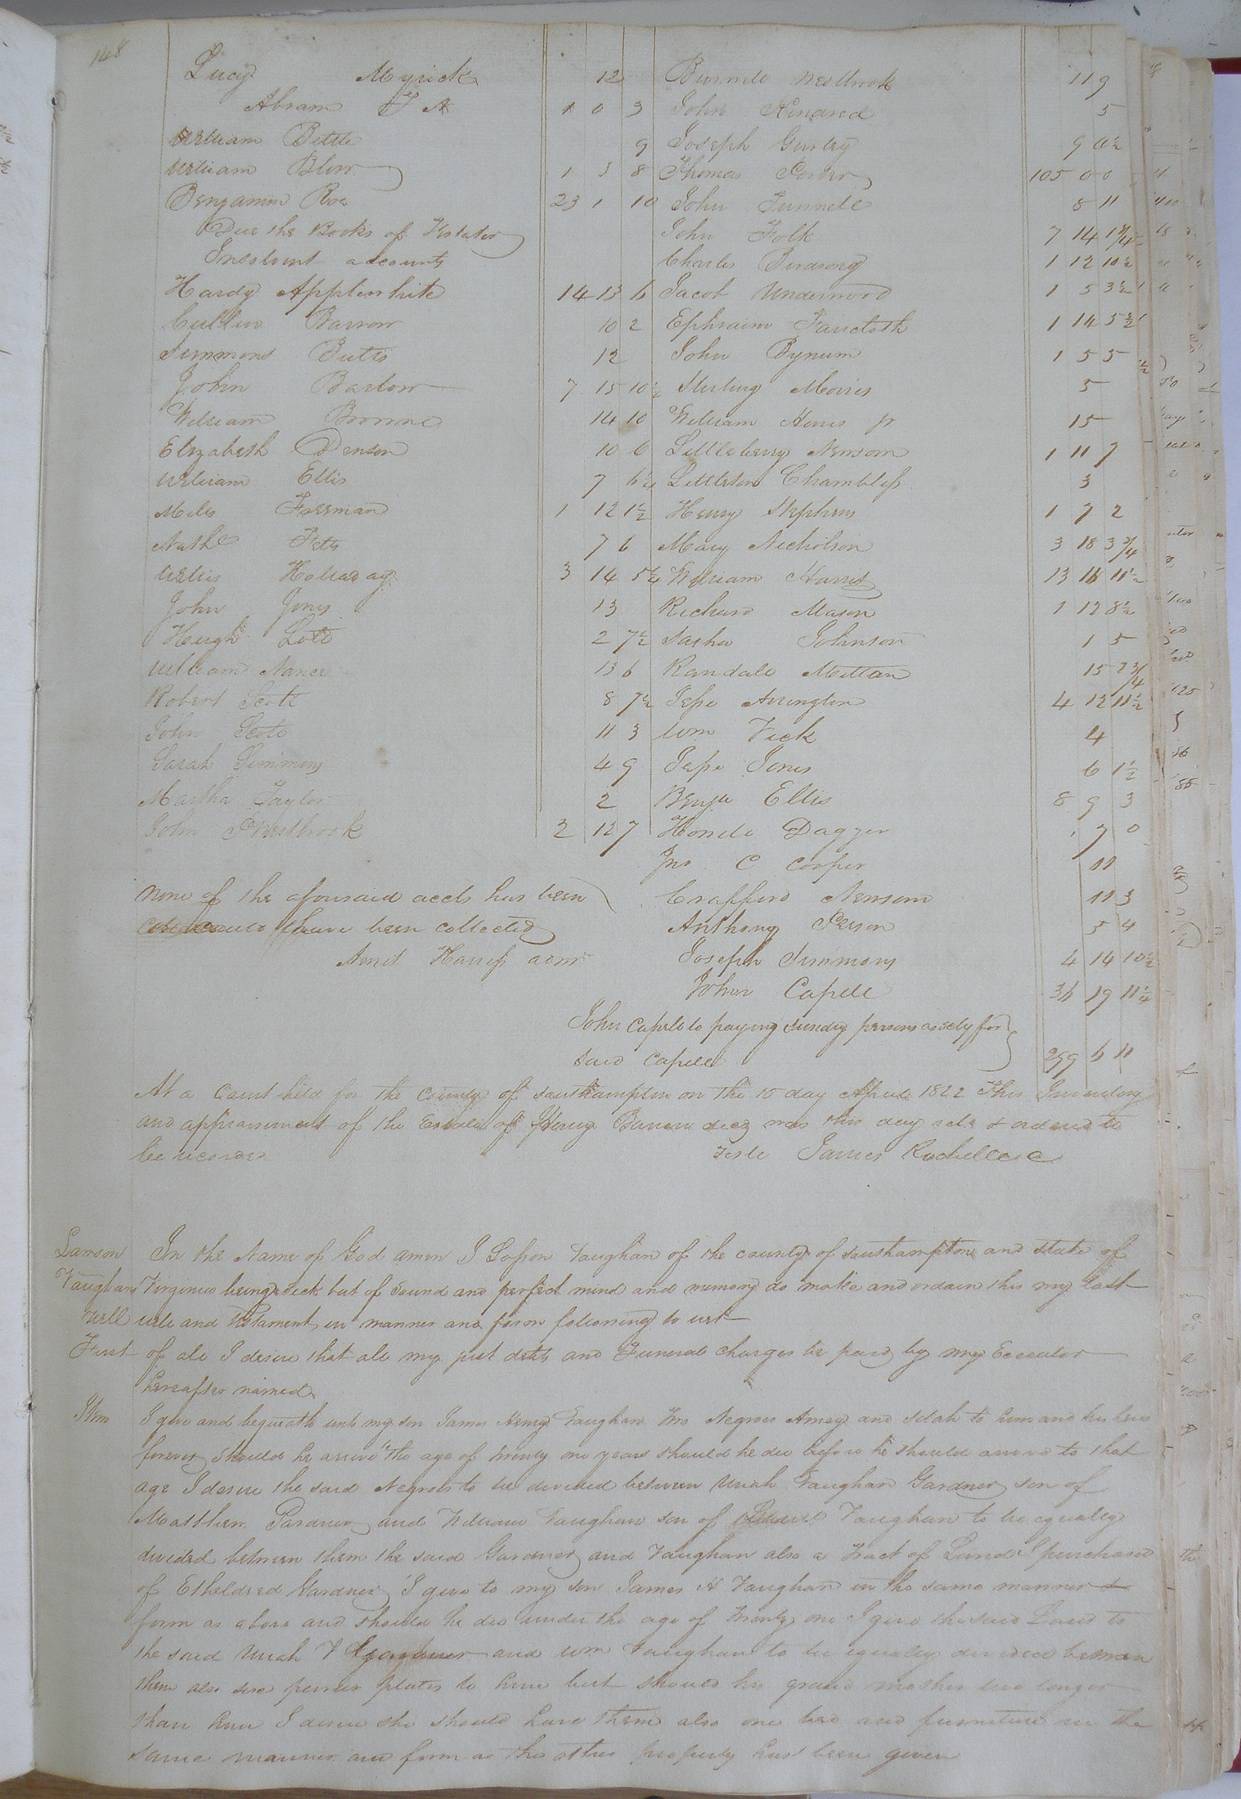 148
Lucy Myrick 12
Abram T A 1 0 3
William Bittle 9
William Blow 1 3 8
Benjamin Roe 23 1 10
Due the Books of Testator
Insolvent accounts
Hardy Applewhite 14 13 6
Cullin Barrow 10 2
Simmons Butts 12
John Barlow 7 15 10½
William Browne 14 10
Elizabeth Denson 10 6
William Ellis 7 6
Miles Freeman 1 12 1½
7 6
Willis Hollaway 3 14
John Jones 13
Hugh Lott 2 7½
William Nance 13 6
Robert Scott 8 7½
John Scott 11 3
Sarah Simmons 4 9
Martha Taylor 2
John Westbrook 2 12 7
None of the aforesaid accts has been
have been collected
Harris admr
Burwell Westbrook 11 9
John Kindred 5
Joseph Gurley 9
Thomas 105 0 0
John Funnell 8 11
John Folk 7 14
Charles Birdsong 1 12 10½
Jacob Underwood 1 5 3½
Ephraim Faircloth 1 14 5½
John Bynum 1 5 5
Sterling Morris 5
William Harris jr 15
Littleberry Newsom 1 11 7
Littleton Chambless 3
Henry Stephens 1 7 2
Mary Nicholson 3 18 3¾
William Harris 13 16 11½
Richard Mason 1 12 8½
Johnson 1 5
Randall 15 7¾
Jesse Arrington 4 12 11½
Wm Vick 4
Jesse Jones 6 1½
Benja Ellis 8 9 3
7 0
Jno C Cooper 11
Crafford Newsom 11 3
Anthony Person 5 4
Joseph Simmons 4 14 10½
John Capell 36 19 11¼
John Capell to paying sundry persons assely for
said Capell 299 6 11
At a Court held for the County of Southampton on the 15 day April 1822 This Inventory
and appraisement of the Estate of Henry Barrow decd was this day retd & ordered to
be recorded Teste James Rochelle cc
Lawson In the Name of God amen I Lawson Vaughan of the county of Southampton and state of
Vaughans Virginia being sick but of sound and perfect mind and memory do make and ordain this my last
Will will and Testament in manner and form following to wit
First of all I desire that all my just debts and Funeral charges be paid by my Executor
hereafter named
Item I give and bequeath unto my son James Henry Vaughan two Negroes Amey and Selah to him and his heirs
forever should he arive the age of twenty one years should he die before he should arrive to that
age I desire the said Negroes to be divided between Uriah Vaughan Gardner son of
Matthew Gardner and William Vaughan son of Vaughan to be equally
divided between them the said Gardner and Vaughan also a Tract of Land I purchased
of Etheldred Gardner I give to my son James H Vaughan in the same manner &
form as above and should he die under the age of twenty one I give the said Land to
the said Uriah V Gardner and Wm Vaughan to be equally divided between
them also six pewter plates to him but should his grand mother live longer
than him I desire she should have them also one bed and furniture in the
same manner and form as the other property has been given